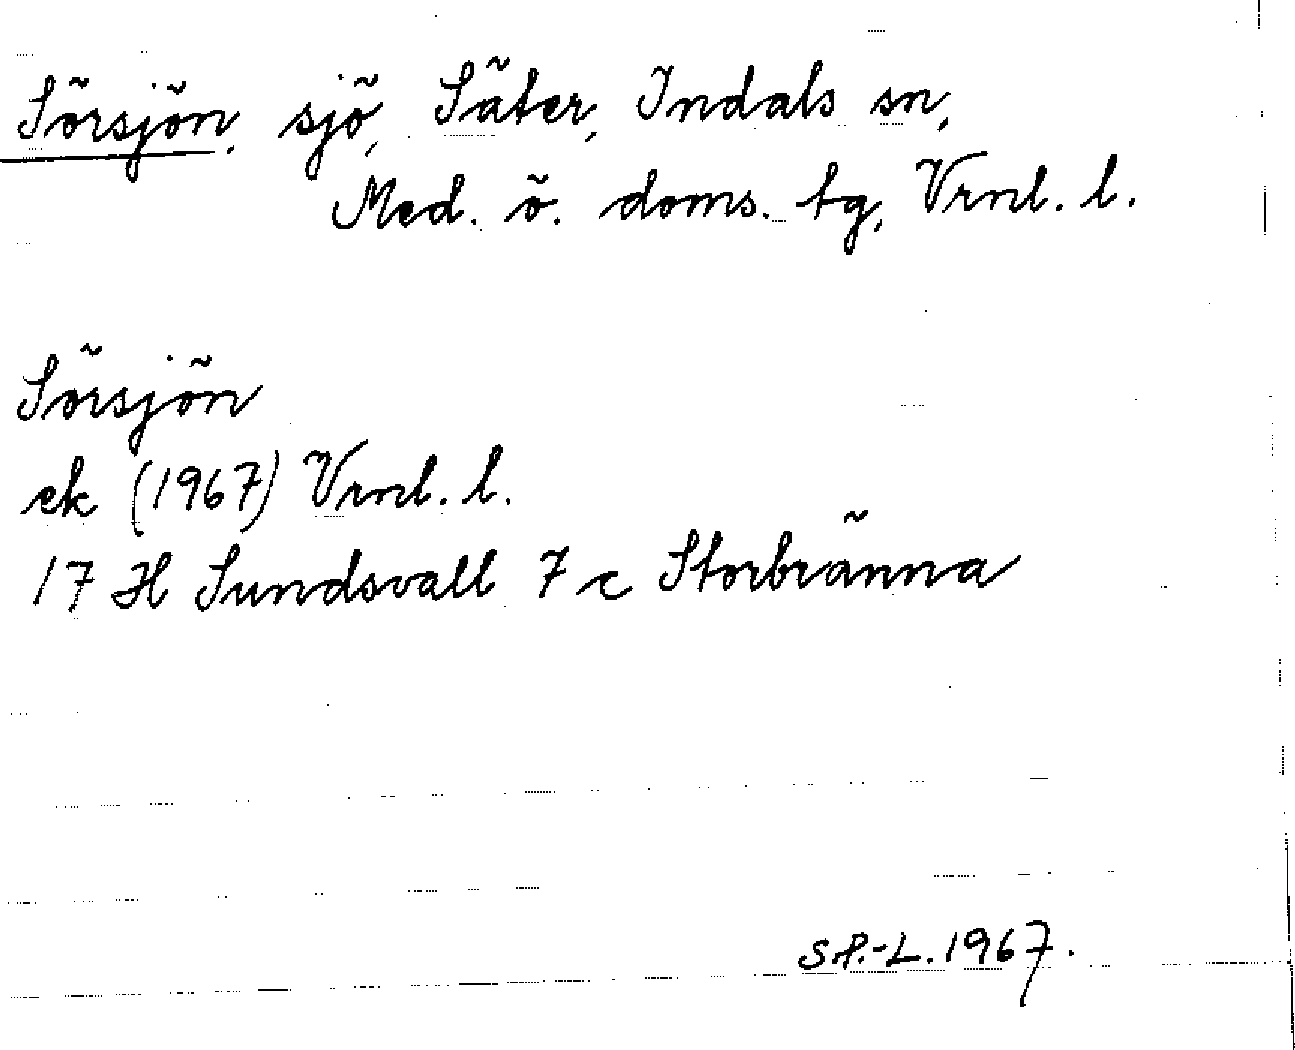 Sörsjön, sjö, Säter, Indals sn,
Med. ö. doms. tg, Vrnl. l.
Sörsjön
ek (1967) Vrnl. l.
17 H Sundsvall 7 c Storbränna
S.P.-L. 1967.